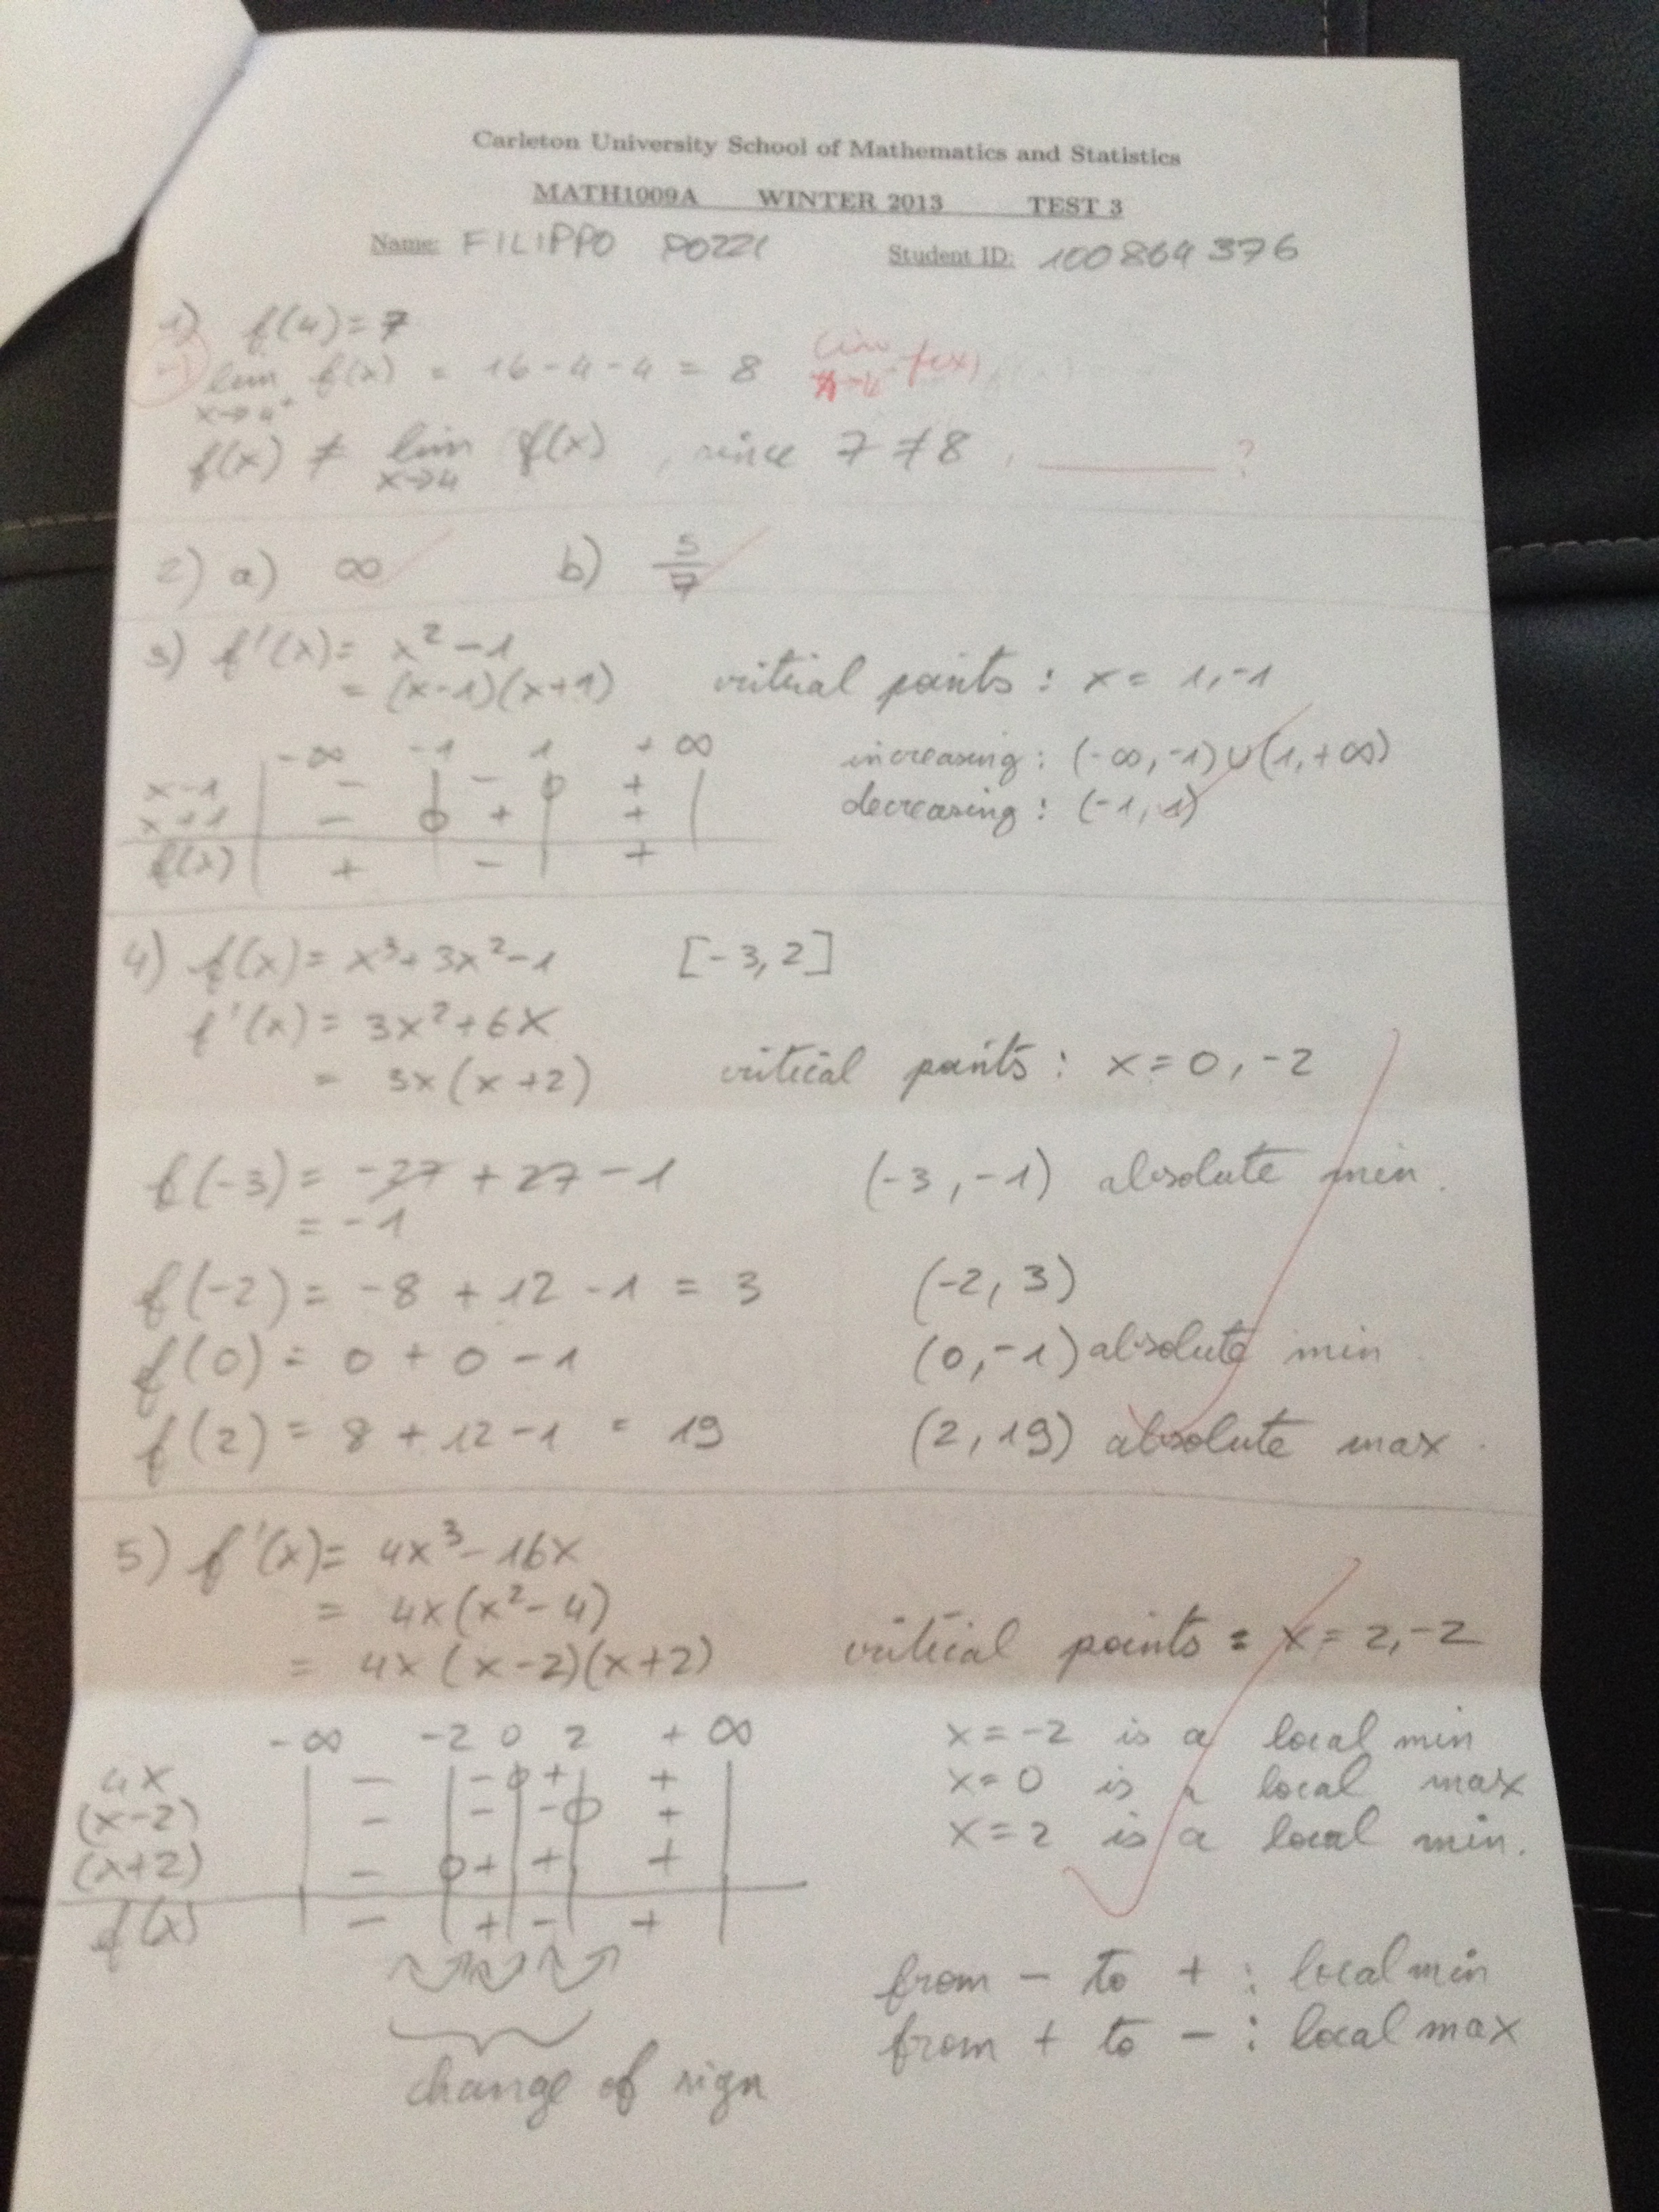 Carleton University School of Mathematics and Statistics
MATH1009A WINTER 2013 TEST 3
Name: FILIPPO POZZI Student ID: 100864376
1) f(4) = 7
lim x→4⁺ f(x) = 16 - 4 - 4 = 8 lim x→4⁻ f(x)
f(x) ≠ lim x→4 f(x), since 7 ≠ 8. ?
2) a) ∞ b) 5/7
3) f'(x) = x² - 1
= (x-1)(x+1) critical points: x = 1, -1
-∞ -1 1 +∞ increasing: (-∞, -1) ∪ (1, +∞)
x-1 - - 0 + decreasing: (-1, 1)
x+1 - 0 + +
f(x) + - +
4) f(x) = x³ + 3x² - 1 [-3, 2]
f'(x) = 3x² + 6x
= 3x(x+2) critical points: x = 0, -2
f(-3) = -27 + 27 - 1 (-3, -1) absolute min.
= -1
f(-2) = -8 + 12 - 1 = 3 (-2, 3)
f(0) = 0 + 0 - 1 (0, -1) absolute min
f(2) = 8 + 12 - 1 = 19 (2, 19) absolute max.
5) f'(x) = 4x³ - 16x
= 4x(x² - 4)
= 4x(x-2)(x+2) critical points = x = 2, -2
-∞ -2 0 2 +∞ x = -2 is a local min
4x - - 0 + + x = 0 is a local max
(x-2) - - - 0 + x = 2 is a local min.
(x+2) - 0 + + +
f(x) - + - +
from - to + : local min
from + to - : local max
change of sign